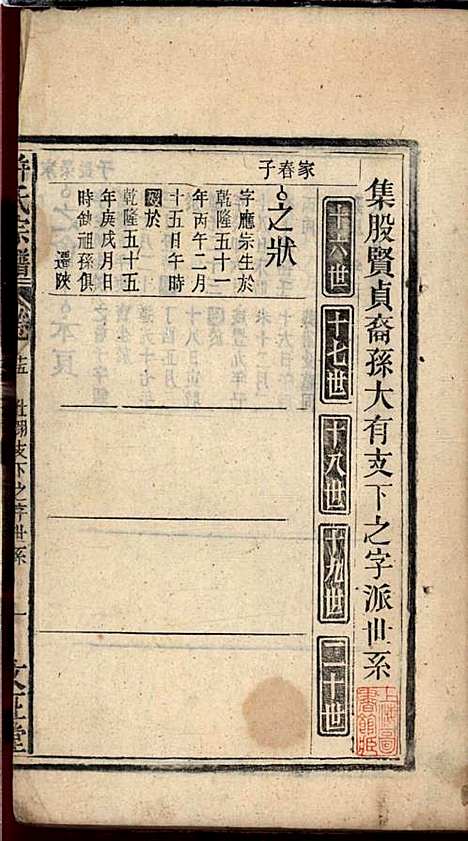 集股賢貞裔孫大有支下之字派世系
十六世
十七世
十八世
十九世
二十世
家春子
之狀
字應宗生於
乾隆五十一
年丙午二月
十五日午時
歿於
乾隆五十五
年庚戌月日
時缺祖孫俱
遷陝
氏宗譜
支下之字世系
文正堂
上海圖書館藏